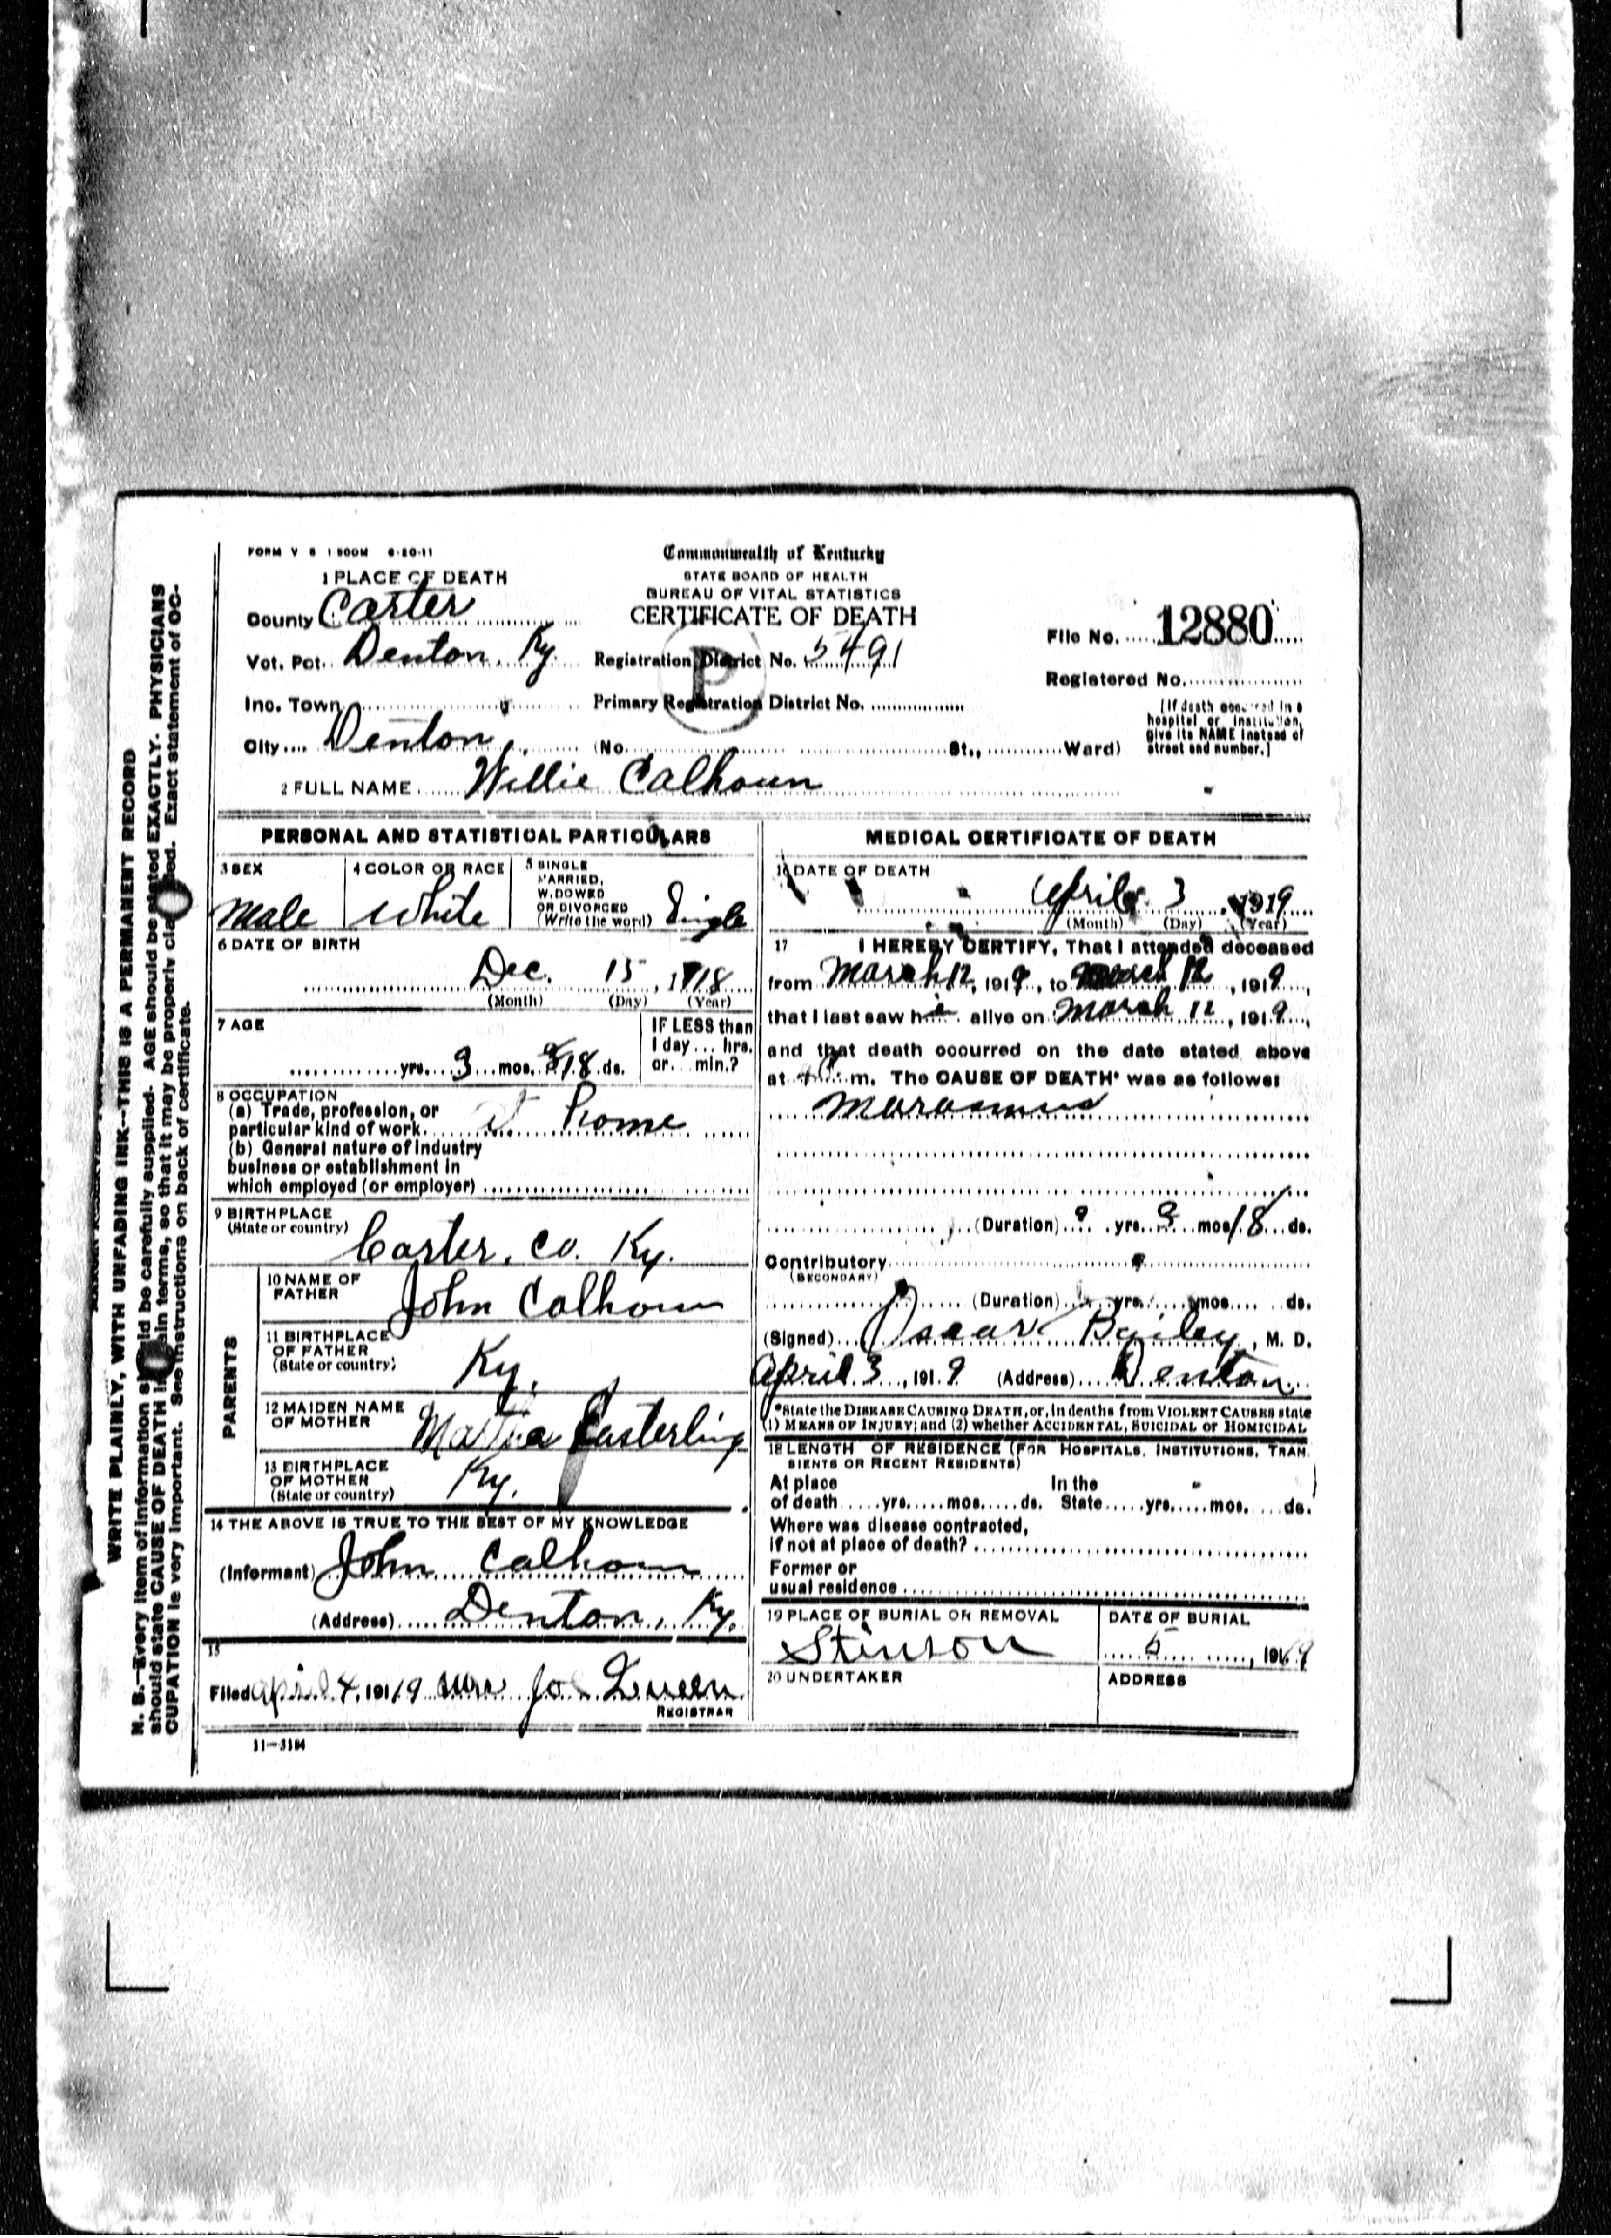 FORM V S 1 500M 6-20-11
Commonwealth of Kentucky
STATE BOARD OF HEALTH
BUREAU OF VITAL STATISTICS
CERTIFICATE OF DEATH
1 PLACE OF DEATH
County Carter
Vot. Pct. Denton, Ky.
Registration District No. 5491
File No. 12880
Inc. Town
Primary Registration District No.
Registered No.
P
City Denton (No. St., Ward)
[If death occurred in a
hospital or institution,
give its NAME instead of
street and number.]
2 FULL NAME Willie Calhoun
PERSONAL AND STATISTICAL PARTICULARS
3 SEX
Male
4 COLOR OR RACE
White
5 SINGLE
MARRIED,
WIDOWED
OR DIVORCED
(Write the word) Single
6 DATE OF BIRTH
Dec. 15, 1918
(Month) (Day) (Year)
7 AGE
yrs. 3 mos. 18 ds.
IF LESS than
1 day ... hrs.
or ... min.?
8 OCCUPATION
(a) Trade, profession, or
particular kind of work at home
(b) General nature of industry
business or establishment in
which employed (or employer)
9 BIRTHPLACE
(State or country)
Carter, Co. Ky.
PARENTS
10 NAME OF
FATHER
John Calhoun
11 BIRTHPLACE
OF FATHER
(State or country)
Ky.
12 MAIDEN NAME
OF MOTHER
Easterling
13 BIRTHPLACE
OF MOTHER
(State or country)
Ky.
14 THE ABOVE IS TRUE TO THE BEST OF MY KNOWLEDGE
(Informant) John Calhoun
(Address) Denton, Ky.
15
Filed April 4, 191 19
REGISTRAR
11-3184
MEDICAL CERTIFICATE OF DEATH
16 DATE OF DEATH
April 3, 1919
(Month) (Day) (Year)
17 I HEREBY CERTIFY, That I attended deceased
from March 12, 1919, to March 12, 1919,
that I last saw h alive on March 12, 1919,
and that death occurred on the date stated above
at m. The CAUSE OF DEATH* was as follows:
Marasmus
(Duration) yrs. 3 mos 18 ds.
Contributory
(SECONDARY)
(Duration) yrs. mos. ds.
(Signed) Oscar Bailey, M. D.
April 3, 1919 (Address) Denton
*State the DISEASE CAUSING DEATH, or, in deaths from VIOLENT CAUSES state
(1) MEANS OF INJURY; and (2) whether ACCIDENTAL, SUICIDAL or HOMICIDAL
18 LENGTH OF RESIDENCE (FOR HOSPITALS, INSTITUTIONS, TRAN-
SIENTS OR RECENT RESIDENTS)
At place In the
of death yrs. mos. ds. State yrs. mos. ds.
Where was disease contracted,
if not at place of death?
Former or
usual residence
19 PLACE OF BURIAL OR REMOVAL
Stinson
DATE OF BURIAL
5, 1919
20 UNDERTAKER
ADDRESS
WRITE PLAINLY, WITH UNFADING INK--THIS IS A PERMANENT RECORD
N. B.--Every item of information should be carefully supplied. AGE should be stated EXACTLY. PHYSICIANS
should state CAUSE OF DEATH in plain terms, so that it may be properly classified. Exact statement of OC-
CUPATION is very important. See instructions on back of certificate.